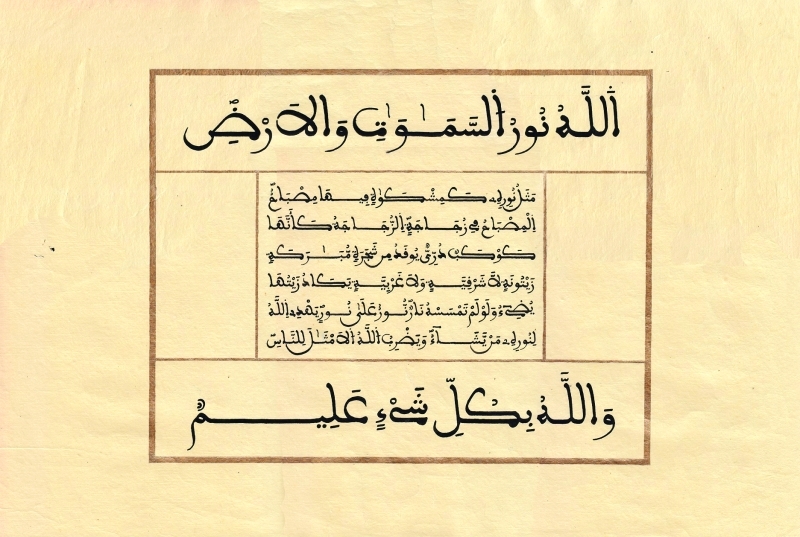 اَللَّهُ نُورُ السَّمَٰوَٰتِ وَالَارْضِ
مَثَلُ نُورِهِۦ كَمِشْكَوٰةٍ فِيهَا مِصْبَاحٌ
اِلْمِصْبَاحُ فِي زُجَاجَةٍ اِلزُّجَاجَةُ كَأَنَّهَا
كَوْكَبٌ دُرِّيٌّ يُوقَدُ مِن شَجَرَةٍ مُّبَٰرَكَةٍ
زَيْتُونَةٍ لَّا شَرْقِيَّةٍ وَلَا غَرْبِيَّةٍ يَكَادُ زَيْتُهَا
يُضِيءُ وَلَوْ لَمْ تَمْسَسْهُ نَارٌ نُّورٌ عَلَىٰ نُورٍ يَهْدِي اللَّهُ
لِنُورِهِۦ مَنْ يَّشَآءُ وَيَضْرِبُ اللَّهُ الَامْثَٰلَ لِلنَّاسِ
وَاللَّهُ بِكُلِّ شَيْءٍ عَلِيمٌ